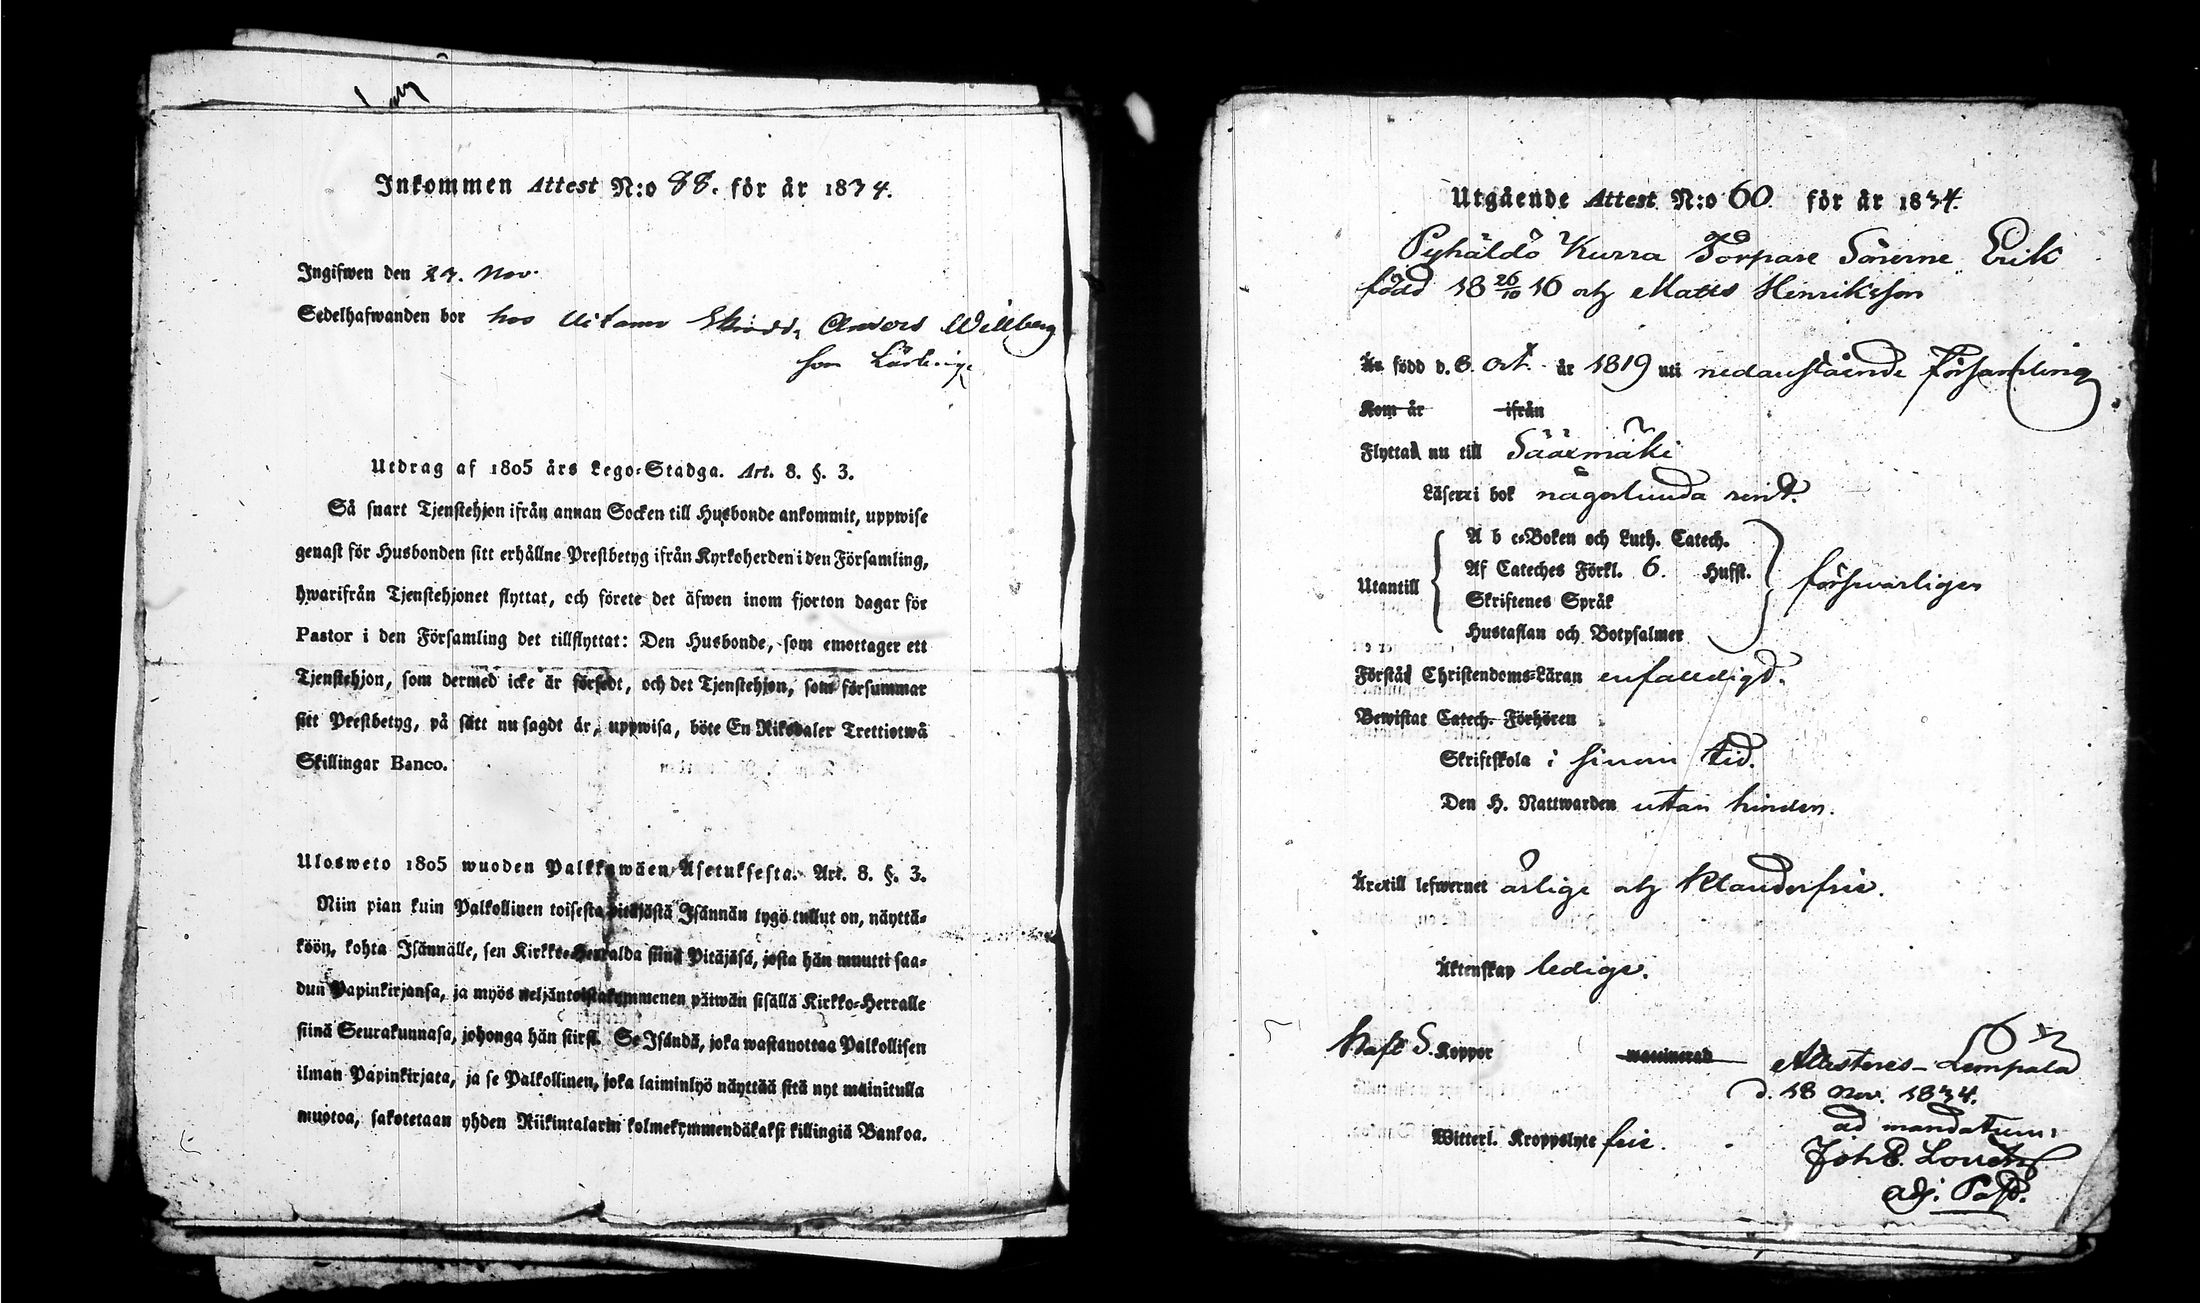 Inkommen Attest N:o 88. för år 1834.
Ingifwen den 27. Nov.
Sedelhafwanden bor hos Anders Willberg
som Lärling
Utdrag af 1805 års Lego-Stadga. Art. 8. §. 3.
Så snart Tjenstehjon ifrån annan Socken till Husbonde ankommit, uppwise
genast för Husbonden sitt erhållne Prestbetyg ifrån Kyrkoherden i den Församling,
hwarifrån Tjenstehjonet flyttat, och förete det äfwen inom fjorton dagar för
Pastor i den Församling det tillflyttat: Den Husbonde, som emottager ett
Tjenstehjon, som dermed icke är försedt, och det Tjenstehjon, som försummar
sitt Prestbetyg, på sätt nu sagdt är, uppwisa, böte En Riksdaler Trettiotwå
Skillingar Banco.
Ulosweto 1805 wuoden Palkkawäen Asetuksesta. Art. 8. §. 3.
Niin pian kuin Palkollinen toisesta pitäjästä Isännän tygö tullut on, näyttä-
köön, kohta Isännälle, sen Kirkko-Herralda siinä Pitäjäsä, josta hän muutti saa-
dun Papinkirjansa, ja myös neljäntoistakymmenen päiwän sisällä Kirkko-Herralle
siinä Seurakunnasa, johonga hän siirsi. Se Isändä, joka wastanottaa Palkollisen
ilman Papinkirjata, ja se Palkollinen, joka laiminlyö näyttää sitä nyt mainitulla
muotoa, sakotetaan yhden Riikintalarin kolmekymmendäkaksi killingiä Bankoa.
Utgående Attest N:o 60. för år 1834.
Pyhäldö Kurra Torpare Sönerne Erik
född 18 26/10 16 och Matts Henriksson
Är född d. 8. Oct. år 1819 uti nedanstående församling
Kom år ifrån
Flyttad nu till Sääxmäki
Läser i bok någorlunda rent.
A b c-Boken och Luth. Catech.
Af Cateches Förkl. 6. Hufst.
Utantill försvarligen
Skriftenes Språk
Hustaflan och Botpsalmer
Förstår Christendoms-Läran enfalldigt.
Bewistat Catech. Förhören
Skriftskola i sinom tid.
Den H. Nattwarden utan hinder.
Äretill lefwernet ärlige och Klanderfrie.
Äktenskap ledige.
Haft S. Koppor waccinerad Attesteres Lempälä
d. 18 Nov. 1834.
ad mandatum:
Witterl. Kroppslyte frie.
Joh E.
adj. Past.